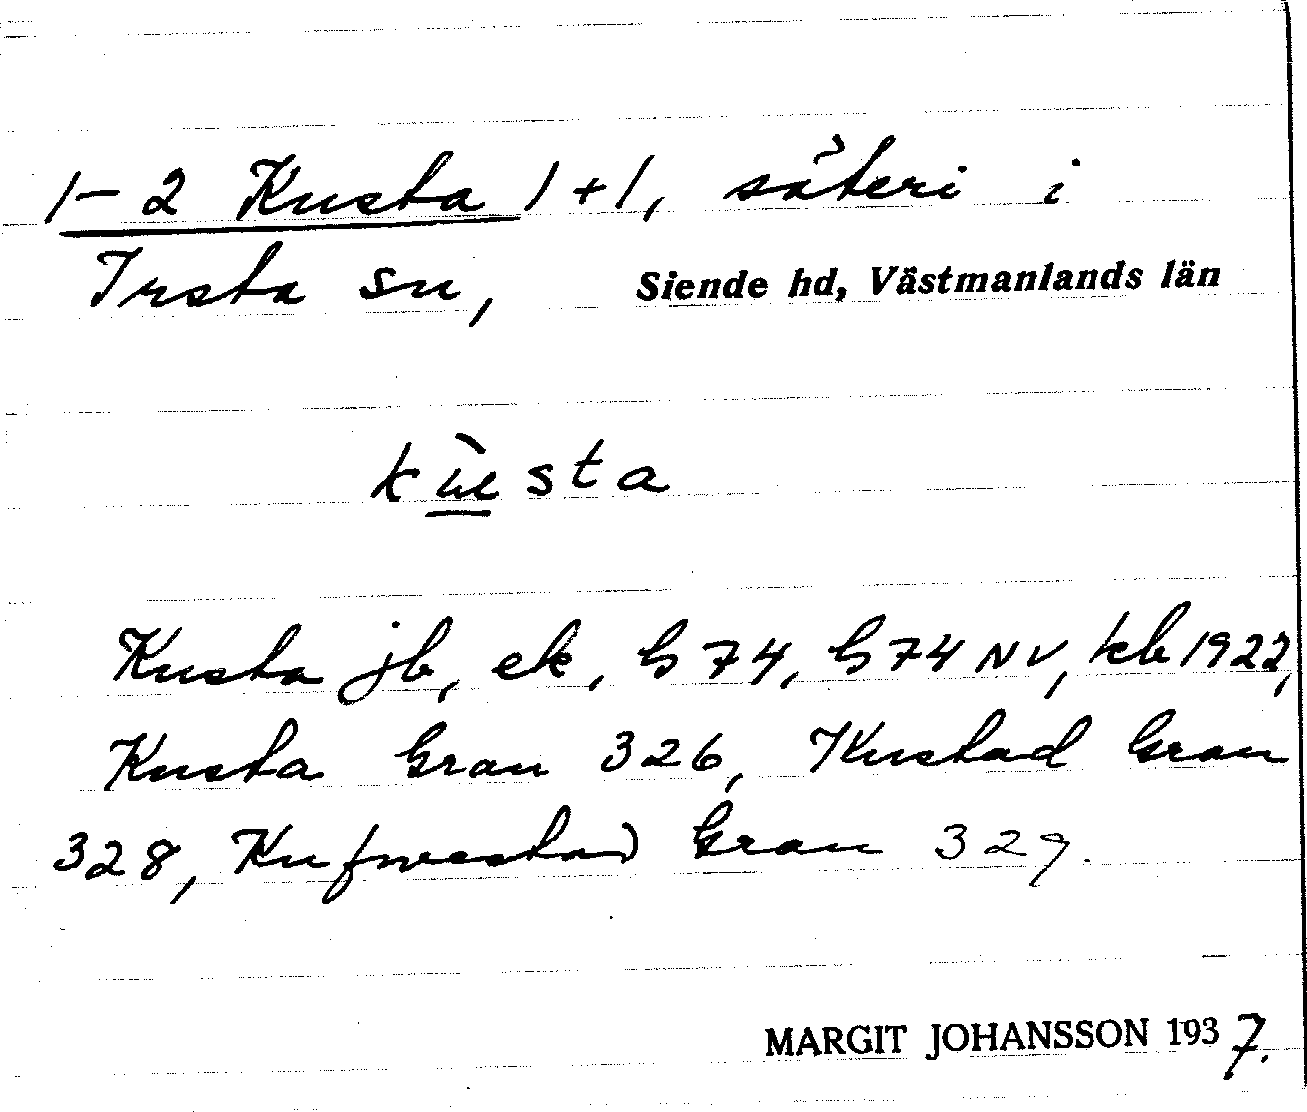 1-2 Kusta 1+1, säteri i
Irsta sn, Siende hd, Västmanlands län
kùsta
Kusta jb, ek, G 74, G 74 NV, kb 1922,
Kusta Gran 326, Kustad Gran
328, Kufwestad Gran 329.
MARGIT JOHANSSON 1937.